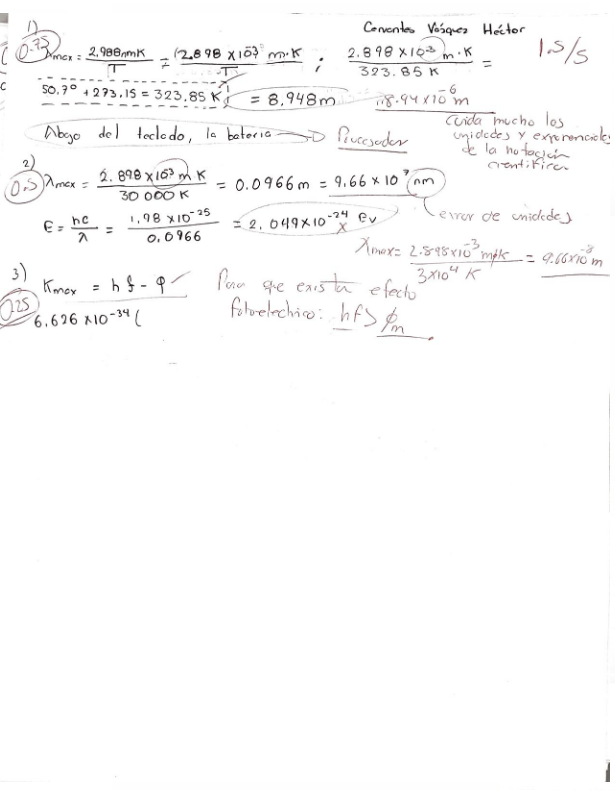 1)
Cervantes Vásquez Héctor
0.75
λmax = 2,988nmK / T = (2.898 x10⁻³ m·K / T ; 2.898 x10⁻³ m·K / 323.85 K =
1.5/5
50.7° + 273.15 = 323.85 K = 8,948m
8.94x10⁻⁶ m
Cuida mucho las
unidades y exponenciales
de la notación
científica
Abajo del teclado, la bateria → Procesador
2)
0.5
λmax = 2.898 x10³ m K / 30 000 K = 0.0966 m = 9.66 x 10⁷ nm
error de unidades
E = hc / λ = 1.98 x10⁻²⁵ / 0.0966 = 2.049x10⁻²⁴ ev
x
λmax = 2.898x10⁻³ m·K / 3x10⁴ K = 9.66x10⁻⁸ m
3)
0.25
Kmax = h f - φ ✓
Para que exista efecto
fotoelectrico: hf > φm
6.626 x10⁻³⁴ (